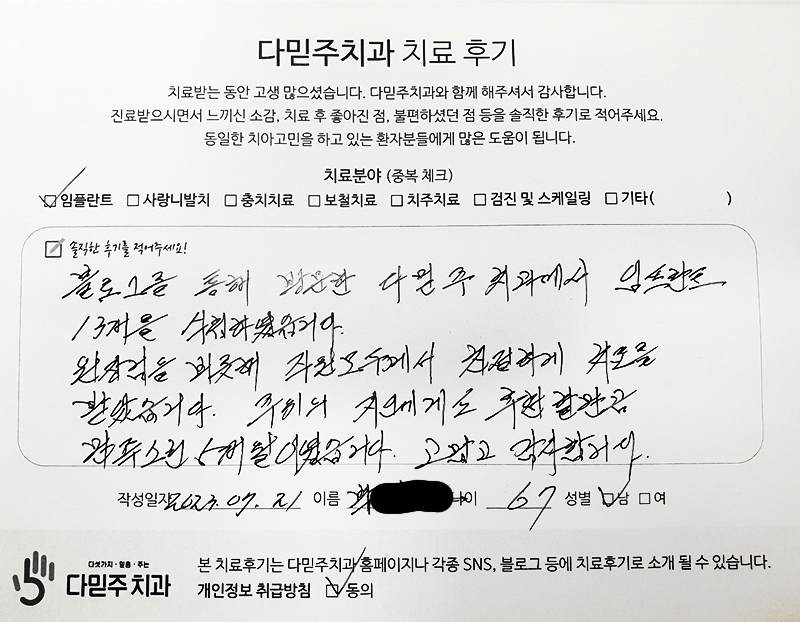 다믿주치과 치료 후기
치료받는 동안 고생 많으셨습니다. 다믿주치과와 함께 해주셔서 감사합니다.
진료받으시면서 느끼신 소감, 치료 후 좋아진 점, 불편하셨던 점 등을 솔직한 후기로 적어주세요.
동일한 치아고민을 하고 있는 환자분들에게 많은 도움이 됩니다.
치료분야 (중복 체크)
☑임플란트 ☐사랑니발치 ☐충치치료 ☐보철치료 ☐치주치료 ☐검진 및 스케일링 ☐기타( )
솔직한 후기를 적어주세요!
블로그를 통해 방문한 다믿주 치과에서 임프란트
13개를 식립하였습니다.
원장님을 비롯해 직원모두에서 친절하게 치료를
받았습니다. 주위의 지인에게도 추천할만큼
5개월이었습니다. 고맙고 감사합니다.
작성일자 2023.07.21 이름 이 67 성별 ☑남 ☐여
다섯가지·믿음·주는
다믿주치과
본 치료후기는 다믿주치과 홈페이지나 각종 SNS, 블로그 등에 치료후기로 소개 될 수 있습니다.
개인정보 취급방침 ☑동의